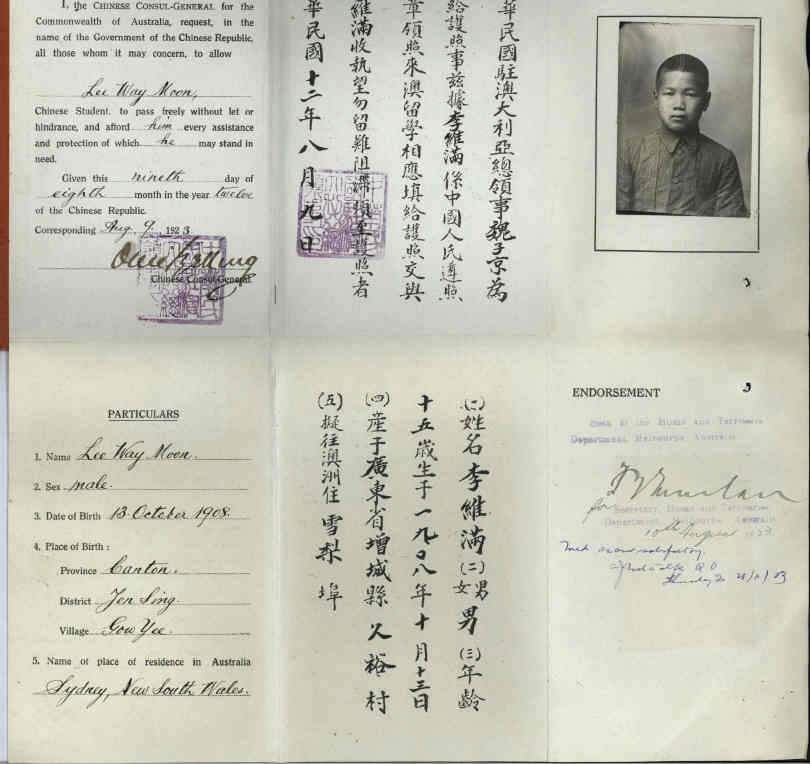 I, the CHINESE CONSUL-GENERAL for the
Commonwealth of Australia, request, in the
name of the Government of the Chinese Republic,
all those whom it may concern, to allow
Lee Way Moon,
Chinese Student, to pass freely without let or
hindrance, and afford him every assistance
and protection of which he may stand in
need.
Given this nineth day of
eighth month in the year twelve
of the Chinese Republic.
Corresponding Aug. 9, 1923
Chinese Consul-General.
華民國駐澳大利亞總領事魏子京為
給護照事茲據李維滿係中國人民遵照
章領照來澳留學相應填給護照交與
維滿收執望勿留難阻滯須至護照者
華民國十二年八月九日
PARTICULARS
1. Name Lee Way Moon.
2. Sex male.
3. Date of Birth 13 October 1908.
4. Place of Birth :
Province Canton.
District Jen Sing.
Village Gow Yee.
5. Name of place of residence in Australia
Sydney, New South Wales.
(一)姓名李維滿(二)男女男(三)年齡
十五歲生于一九〇八年十月十三日
(四)產于廣東省增城縣久裕村
(五)擬往澳洲住雪梨埠
ENDORSEMENT
Home and Territories
Department Melbourne Australia
for Secretary, Home and Territories
Department, Melbourne Australia
10th August 1923